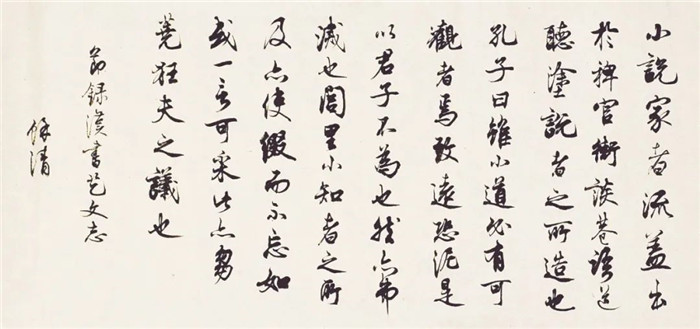 小說家者流蓋出
於稗官街談巷語道
聽塗說者之所造也
孔子曰雖小道必有可
觀者焉致遠恐泥是
以君子不為也然亦弗
滅也閭里小知者之所
及亦使綴而不忘如
或一言可采此亦芻
蕘狂夫之議也
節錄漢書藝文志
清